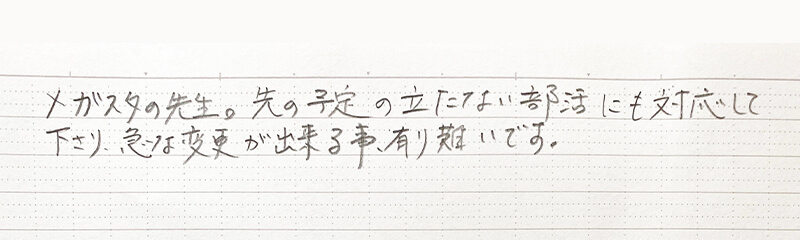 メガスタの先生。先の予定の立たない部活にも対応して
下さり、急な変更が出来る事、有り難いです。